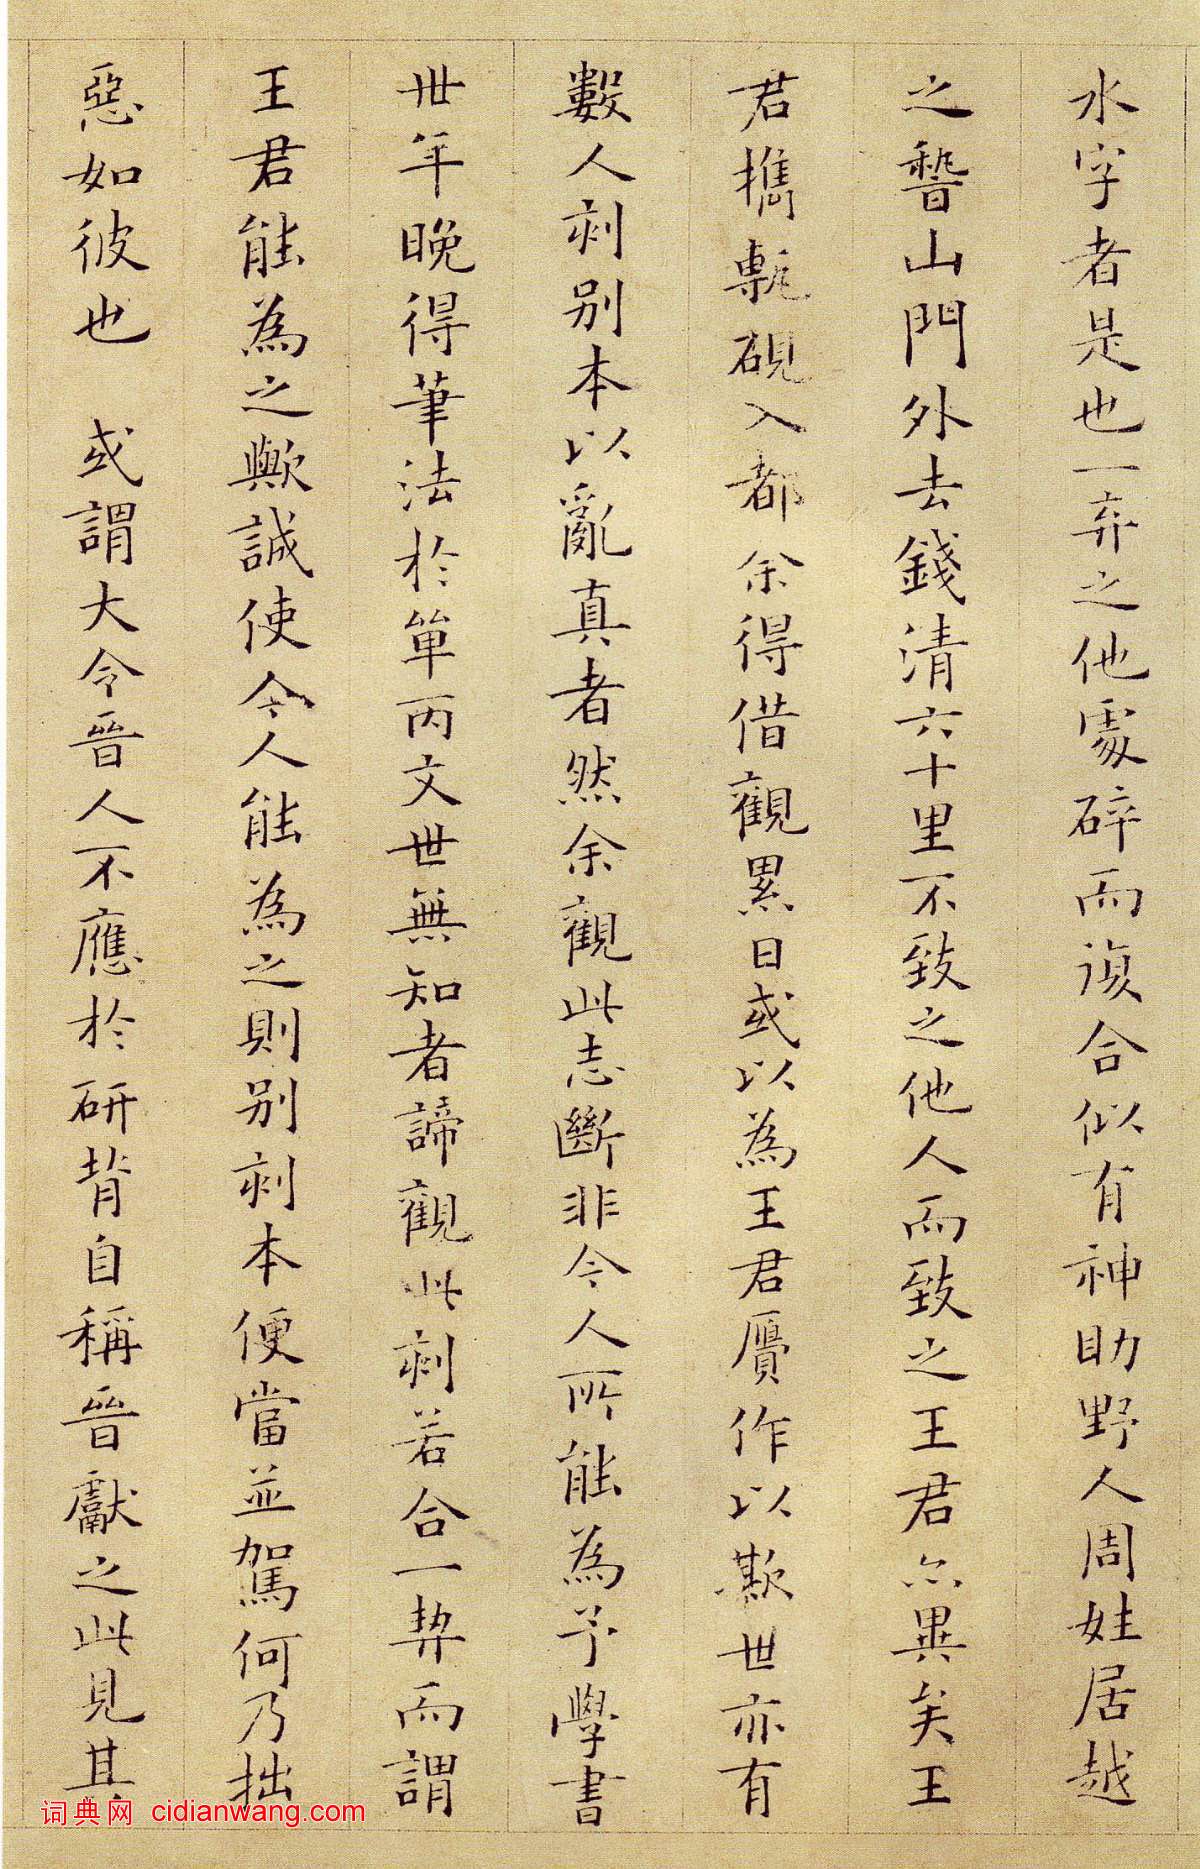 水字者是也一弃之他處碎而復合似有神助野人周姓居越
之稽山門外去錢清六十里不致之他人而致之王君亦異矣王
君攜甎硯入都余得借觀累日或以為王君贋作以欺世亦有
數人刻别本以亂真者然余觀此志斷非今人所能為予學書
卅年晚得筆法於單丙文世無知者諦觀此刻若合一契而謂
王君能為之歟誠使今人能為之則别刻本便當並駕何乃拙
惡如彼也 或謂大令晉人不應於研背自稱晉獻之此見其
词典网 cidianwang.com